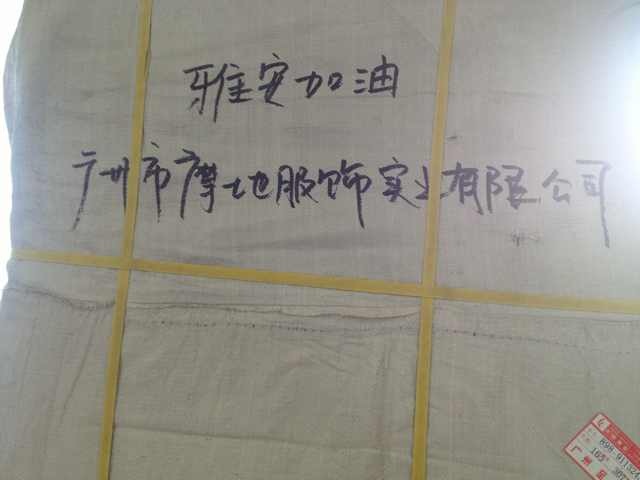 雅安加油
广州市摩地服饰实业有限公司
广州